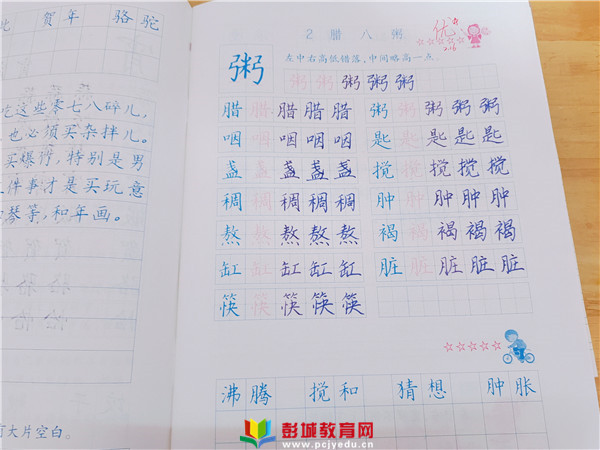 贺年 骆驼
吃这些零七八碎儿,
也必须买杂拌儿。
买爆竹,特别是男
件事才是买玩意
琴等,和年画。
有大片空白。
2 腊八粥
优
2.16
左中右高低错落,中间略高一点。
粥 粥 粥 粥 粥 粥
腊 腊 腊 腊 腊 粥 粥 粥 粥 粥
咽 咽 咽 咽 咽 匙 匙 匙 匙 匙
盏 盏 盏 盏 盏 搅 搅 搅 搅 搅
稠 稠 稠 稠 稠 肿 肿 肿 肿 肿
熬 熬 熬 熬 熬 褐 褐 褐 褐 褐
缸 缸 缸 缸 缸 脏 脏 脏 脏 脏
筷 筷 筷 筷 筷
沸腾 搅和 猜想 肿胀
彭城教育网
www.pcjyedu.cn